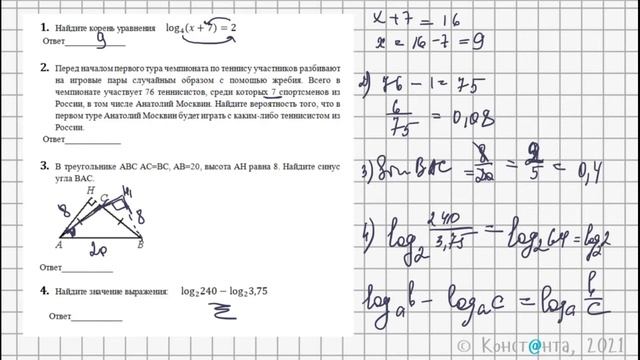 1. Найдите корень уравнения log₄(x + 7) = 2
Ответ____________ 9
2. Перед началом первого тура чемпионата по теннису участников разбивают
на игровые пары случайным образом с помощью жребия. Всего в
чемпионате участвует 76 теннисистов, среди которых 7 спортсменов из
России, в том числе Анатолий Москвин. Найдите вероятность того, что в
первом туре Анатолий Москвин будет играть с каким-либо теннисистом из
России.
Ответ____________
3. В треугольнике ABC AC=BC, AB=20, высота AH равна 8. Найдите синус
угла BAC.
H
C
H₁
8
8
A
B
20
Ответ____________
4. Найдите значение выражения: log₂240 − log₂3,75
Ответ____________
x + 7 = 16
x = 16 - 7 = 9
2) 76 - 1 = 75
6/75 = 0,08
3) Sin BAC = 8/20 = 2/5 = 0,4
4) log₂ 240/3,75 = log₂64 = log₂2
logₐb - logₐc = logₐ b/c
© Конст@нта, 2021